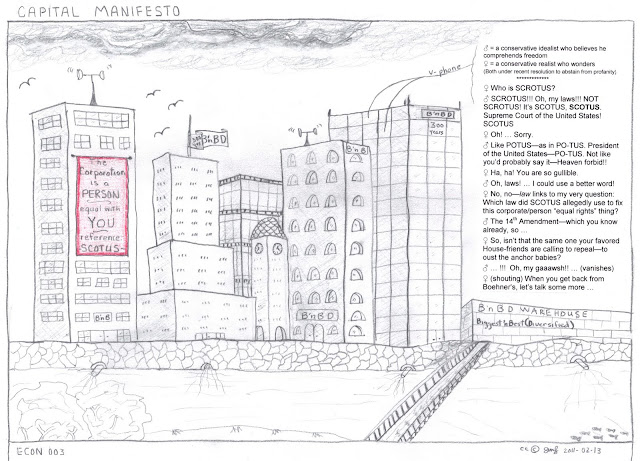 CAPITAL MANIFESTO
v-phone
♂ = a conservative idealist who believes he
comprehends freedom
♀ = a conservative realist who wonders
(Both under recent resolution to abstain from profanity)
*************
♀ Who is SCROTUS?
♂ SCROTUS!!! Oh, my laws!!! NOT
SCROTUS! It's SCOTUS, SCOTUS.
Supreme Court of the United States!
SCOTUS
♀ Oh! … Sorry.
♂ Like POTUS—as in PO-TUS. President
of the United States—PO-TUS. Not like
you'd probably say it—Heaven forbid!!
♀ Ha, ha! You are so gullible.
♂ Oh, laws! … I could use a better word!
♀ No, no—law links to my very question:
Which law did SCOTUS allegedly use to fix
this corporate/person “equal rights” thing?
♂ The 14th Amendment—which you know
already, so …
♀ So, isn't that the same one your favored
House-friends are calling to repeal—to
oust the anchor babies?
♂ … !!! Oh, my gaaawsh!! … (vanishes)
♀ (shouting) When you get back from
Boehner's, let's talk some more …
The
Corporation
is a
PERSON
equal with
YOU
reference
SCOTUS
BnB
B'nBD
B'nBD
300
YEARS
B'nB
B'nBD
B'nBD WAREHOUSE
Biggest'nBest(Diversified)
ECON 003
cc © 2011-02-13